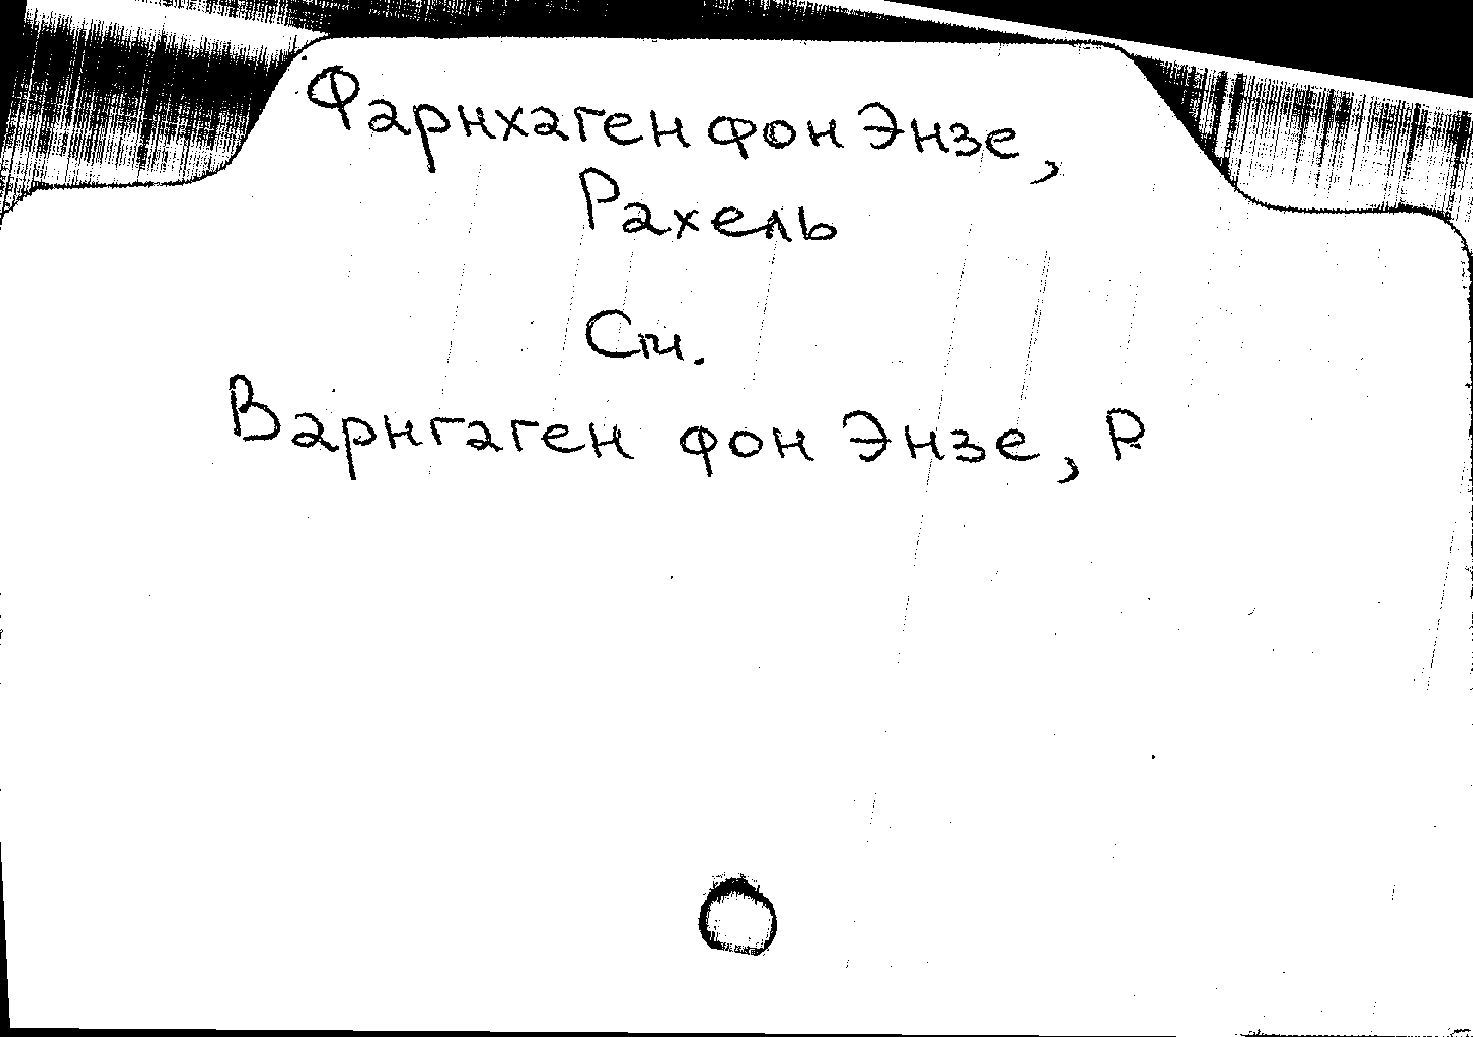 Фарнхаген фон Энзе,
Рахель
См.
Варнгаген фон Энзе, Р